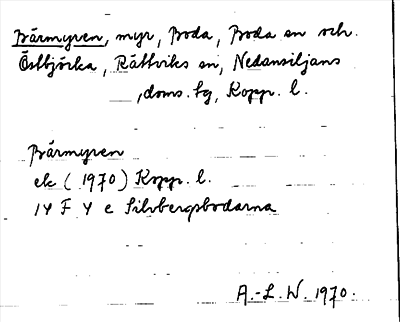 Bärmyren, myr, Boda, Boda sn och
Östbjörka, Rättviks sn, Nedansiljans
doms. tg, Kopp. l.
Bärmyren
ek (1970) Kopp. l.
14 F 4 e Silvbergsbodarna
A.-L. W. 1970.